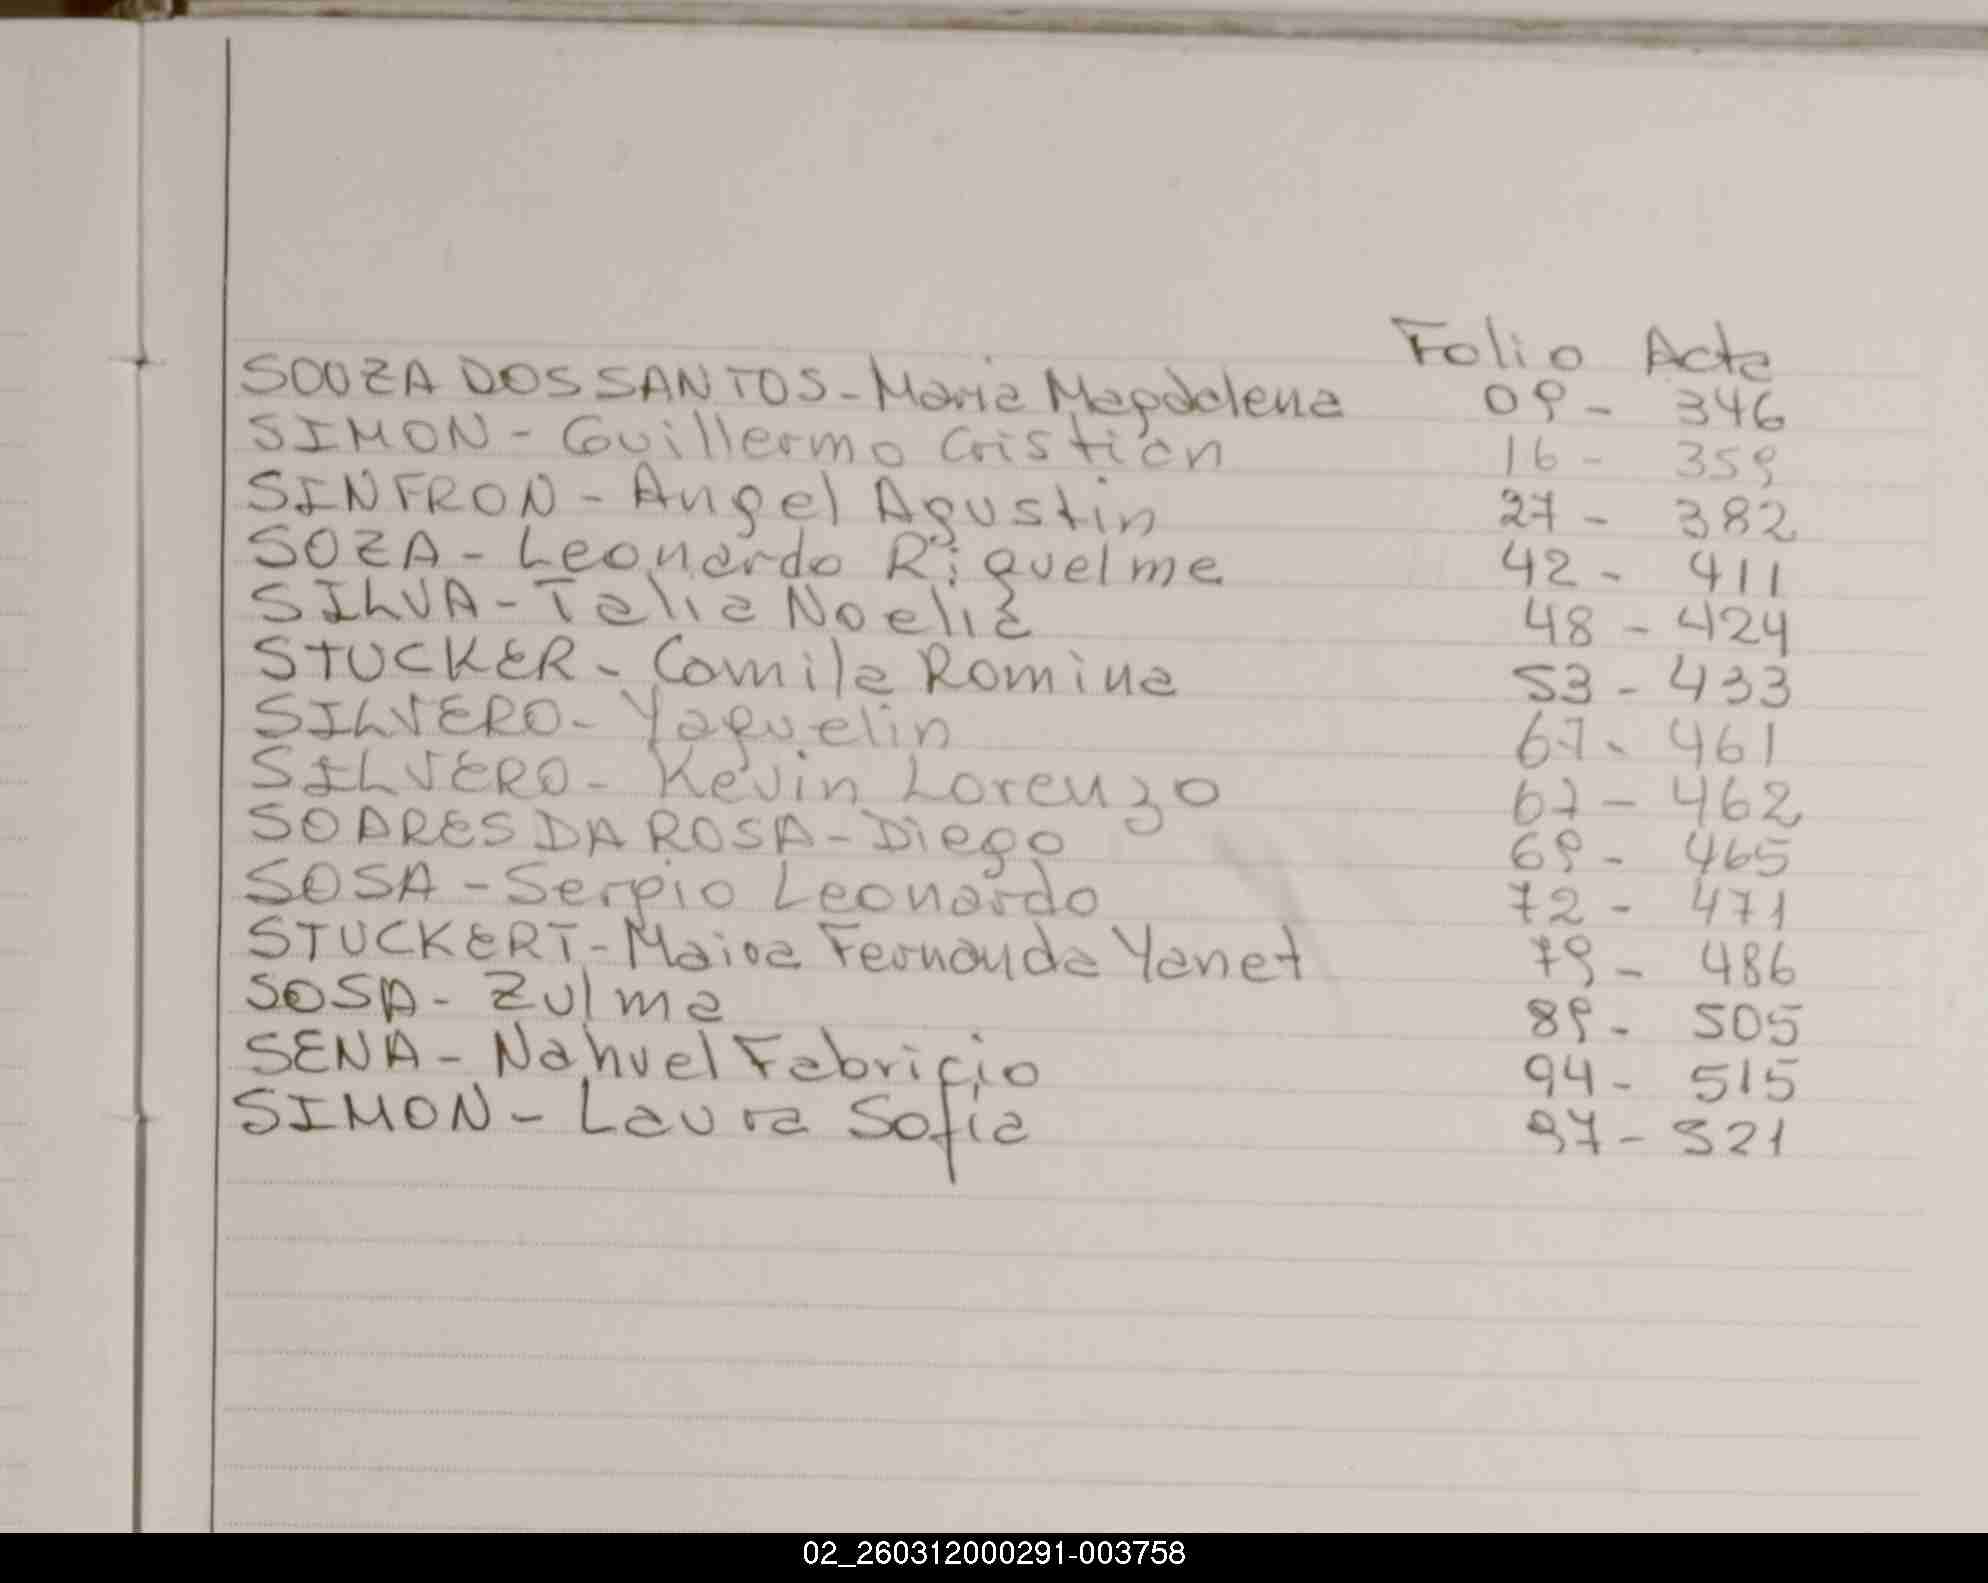 Folio Acta
SOUZA DOS SANTOS - Maria Magdalena 09 - 346
SIMON - Guillermo Cristian 16 - 359
SINFRON - Angel Agustin 27 - 382
SOZA - Leonardo Riquelme 42 - 411
SILVA - Talia Noelia 48 - 424
STUCKER - Camila Romina 53 - 433
SILVERO - Yaquelin 67 - 461
SILVERO - Kevin Lorenzo 67 - 462
SOARES DA ROSA - Diego 69 - 465
SOSA - Sergio Leonardo 72 - 471
STUCKERT - Maira Fernanda Yanet 79 - 486
SOSA - Zulma 89 - 505
SENA - Nahuel Fabricio 94 - 515
SIMON - Laura Sofia 97 - 521
02_260312000291-003758